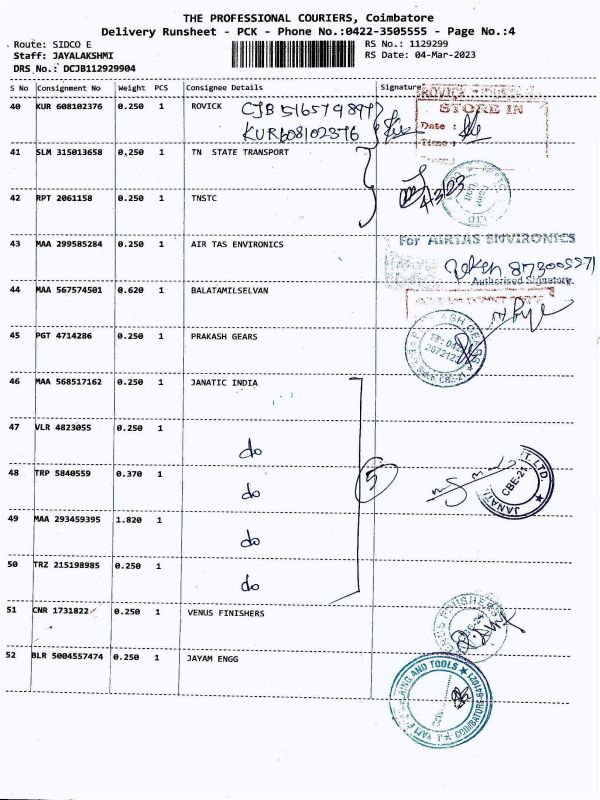 THE PROFESSIONAL COURIERS, Coimbatore
Delivery Runsheet - PCK - Phone No.:0422-3505555 - Page No.:4
Route: SIDCO E
RS No.: 1129299
Staff: JAYALAKSHMI
RS Date: 04-Mar-2023
DRS No.: DCJB112929904
S No Consignment No Weight PCS Consignee Details Signature
40 KUR 608102376 0.250 1 ROVICK
KUR608102376
STORE IN
Date :
Time :
41 SLM 315013658 0,250 1 TN STATE TRANSPORT
4/3/23
42 RPT 2061158 0.250 1 TNSTC
43 MAA 299585284 0.250 1 AIR TAS ENVIRONICS
For AIRTAS ENVIRONICS
Authorised Signatory.
44 MAA 567574501 0.620 1 BALATAMILSELVAN
45 PGT 4714286 0.250 1 PRAKASH GEARS
46 MAA 568517162 0.250 1 JANATIC INDIA
47 VLR 4823055 0.250 1
do
48 TRP 5840559 0.370 1
do
5
CBE-21
49 MAA 293459395 1.820 1
do
50 TRZ 215198985 0.250 1
do
51 CNR 1731822 0.250 1 VENUS FINISHERS
52 BLR 5004557474 0.250 1 JAYAM ENGG
AND TOOLS ★ COIMBATORE-641021